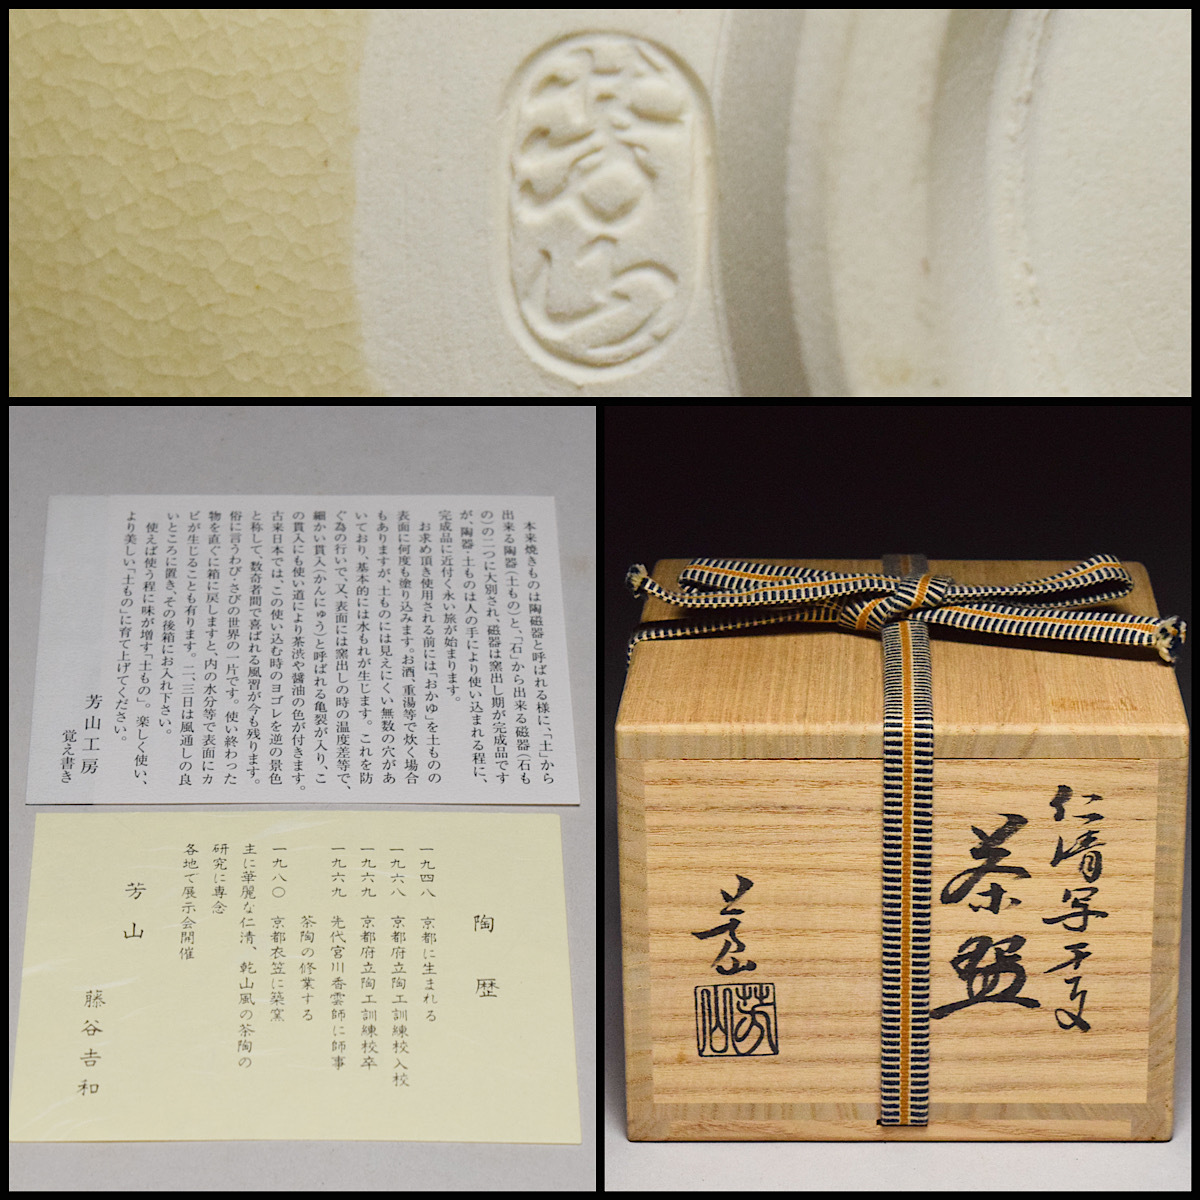 芳山
本来焼きものは陶磁器と呼ばれる様に、「土」から
出来る陶器(土もの)と、「石」から出来る磁器(石も
の)の二つに大別され、磁器は窯出し期が完成品です
が、陶器・土ものは人の手により使い込まれる程に、
完成品に近付く永い旅が始まります。
お求め頂き使用される前には「おかゆ」を土ものの
表面に何度も塗り込みます。お酒、重湯等で炊く場合
もありますが、土ものには見えにくい無数の穴があ
いており、基本的には水もれが生じます。これを防
ぐ為の行いで、又、表面には窯出しの時の温度差等で、
細かい貫入(かんにゅう)と呼ばれる亀裂が入り、こ
の貫入にも使い道により茶渋や醤油の色が付きます。
古来日本では、この使い込む時のヨゴレを逆の景色
と称して、数奇者間で喜ばれる風習が今も残ります。
俗に言うわび・さびの世界の一片です。使い終わった
物を直ぐに箱に戻しますと、内の水分等で表面にカ
ビが生じることも有ります。二、三日は風通しの良
いところに置き、その後箱にお入れ下さい。
使えば使う程に味が増す「土もの」。楽しく使い、
より美しい「土もの」に育て上げてください。
芳山工房
覚え書き
陶歴
一九四八 京都に生まれる
一九六八 京都府立陶工訓練校入校
一九六九 京都府立陶工訓練校卒
一九六九 先代宮川香雲師に師事
茶陶の修業する
一九八〇 京都衣笠に築窯
主に華麗な仁清、乾山風の茶陶の
研究に専念
各地で展示会開催
芳山 藤谷吉和
仁清写干支
茶盌
芳山
芳山